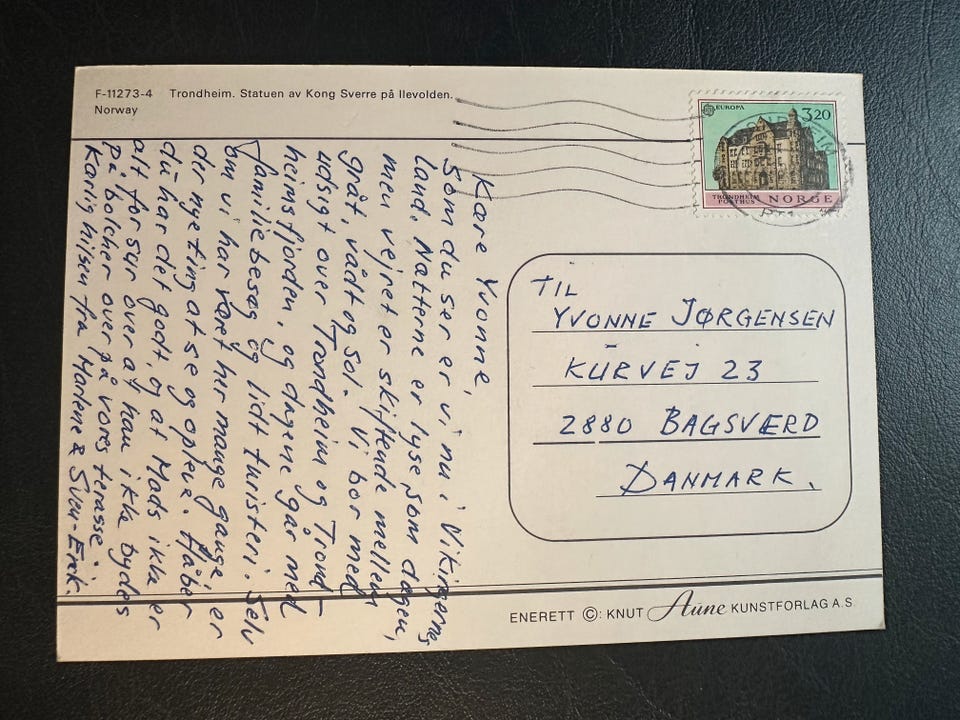 F-11273-4 Trondheim. Statuen av Kong Sverre på Ilevolden.
Norway
Kære Yvonne,
som du ser er vi nu i Vikingernes
land. Nætterne er lyse som dagen,
men vejret er skiftende mellem
gråt, vådt og sol. Vi bor med
udsigt over Trondheim og Trond-
heimsfjorden, og dagene går med
familiebesøg og lidt turisteri. Selv
om vi har været her mange gange, er
der nye ting at se og opleve. Håber
du har det godt, og at Mads ikke er
alt for sur over at han ikke bydes
på bolcher over på vores terasse.
Kærlig hilsen fra Marlene & Svun-Erik.
EUROPA
320
TRONDHEIM
POSTHUS
NORGE
TIL
YVONNE JØRGENSEN
KURVEJ 23
2880 BAGSVÆRD
DANMARK.
ENERETT ©: KNUT Aune KUNSTFORLAG A.S